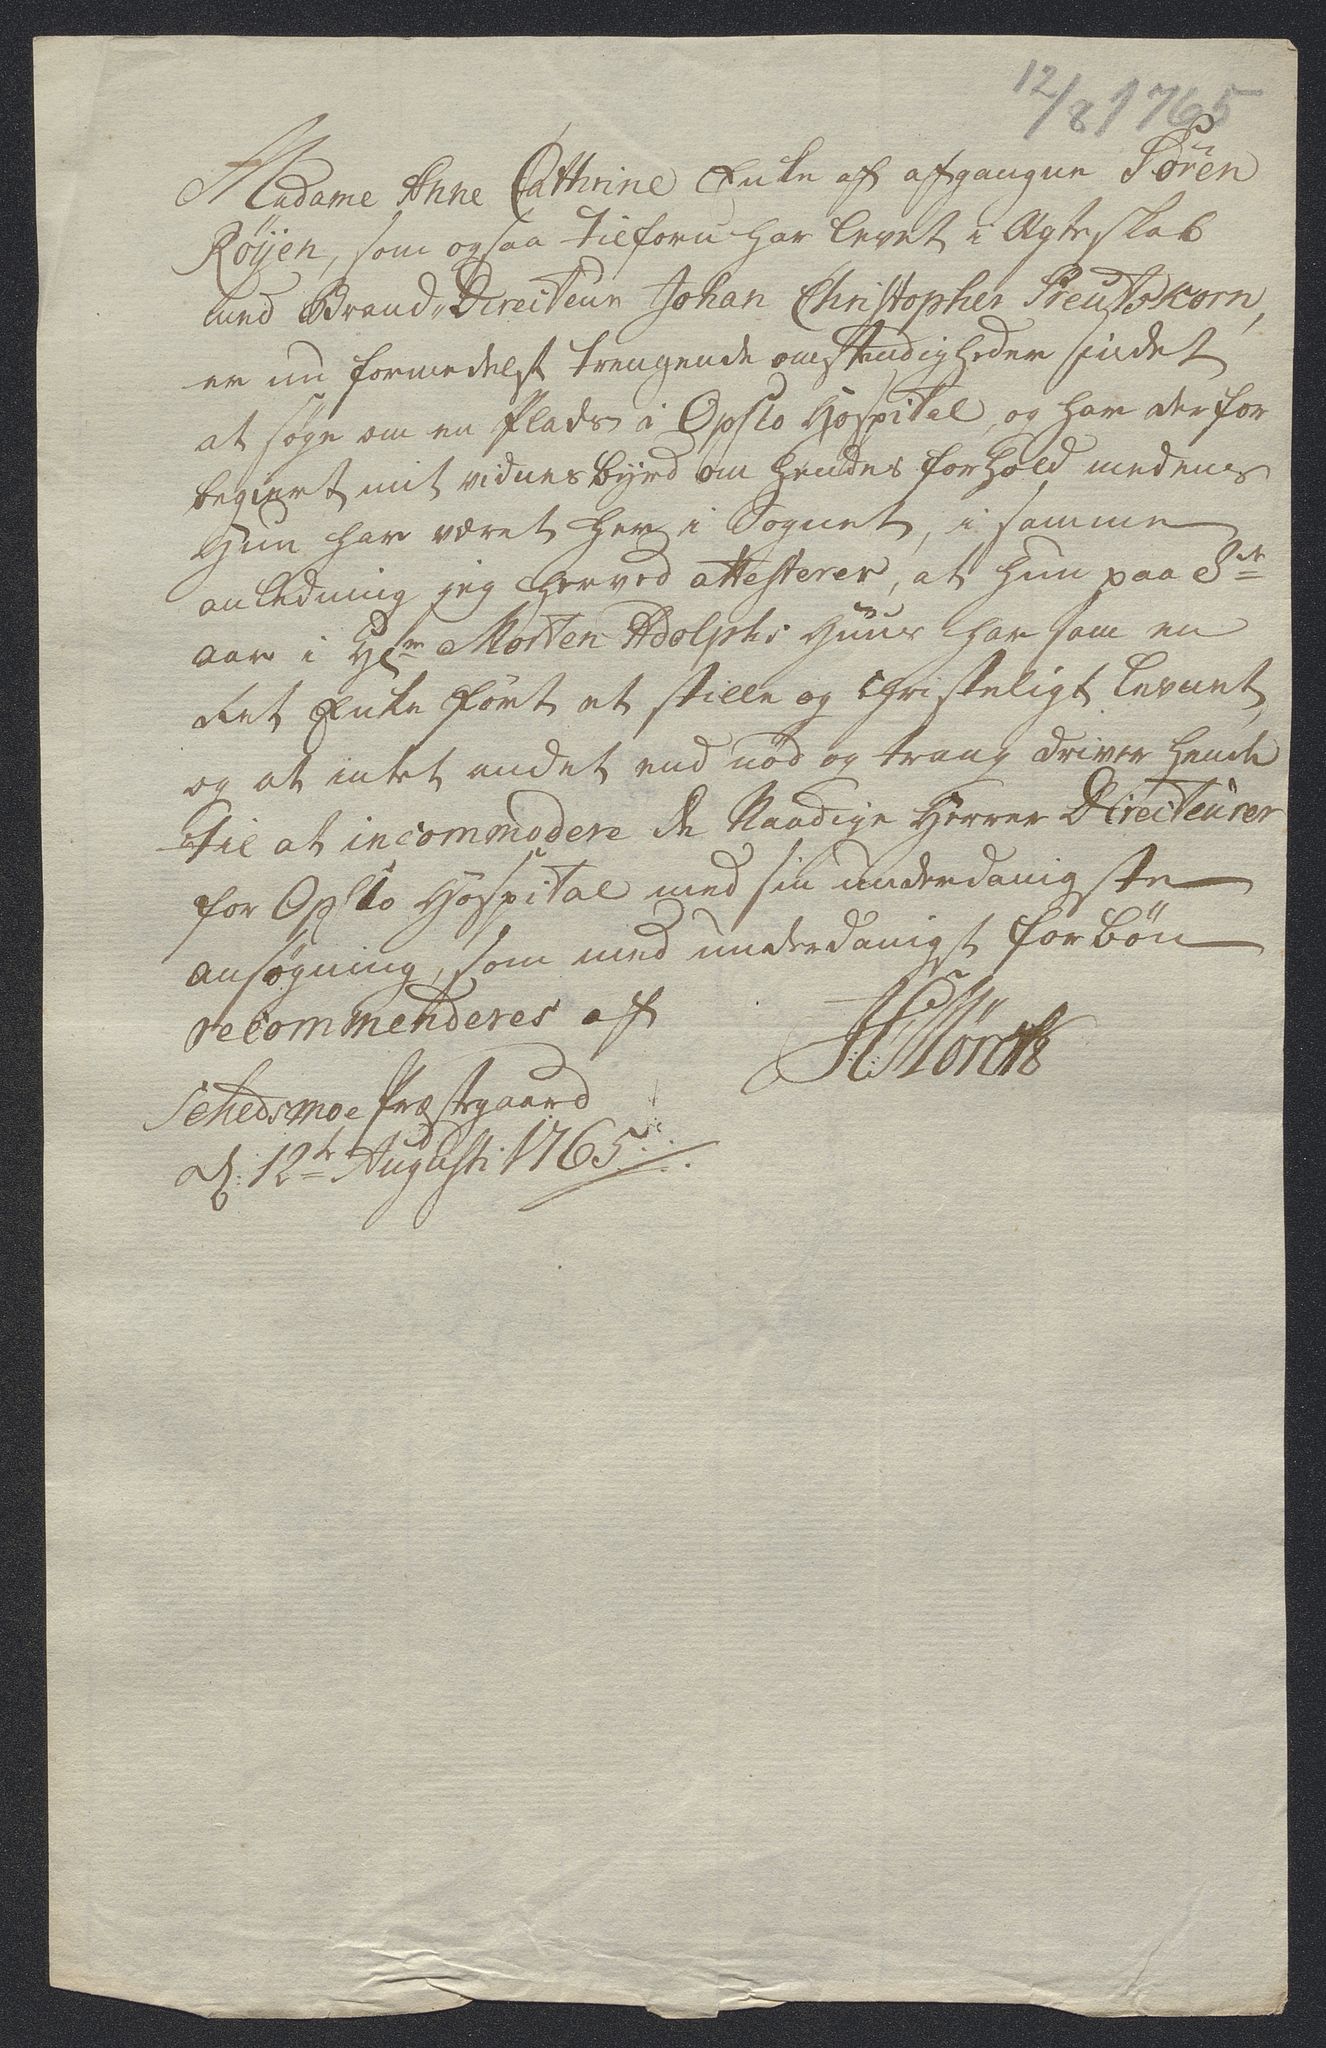 12/8 1765
Madame Anne Cathrine Enke af afgangne Sören
Röÿen, som ogsaa tilforn har levet i Ægteskab
med Brand-Directeur Johan Christopher Preutskorn,
er nu formedelst trengende omstendigheder sindet
at søge om en Plads i Opslo Hospital, og har derfor
begiert mit vidnesbÿrd om hendes forhold medens
Hun har været her i Sognet, i samme
anledning jeg herved attesterer, at hun paa 3de
aar i Hr Morten Adolphs Huus har som en
ret Enke ført et stille og christeligt levnet,
og at intet andet end nöd og trang driver hende
til at incommodere de Naadige Herrer Directeurer
for Opslo Hospital med sin underdanigste
ansøgning, som med underdanigst forbön
recommenderes af
HMörch
Schedsmoe Præstgaard
d: 12te Augusti 1765